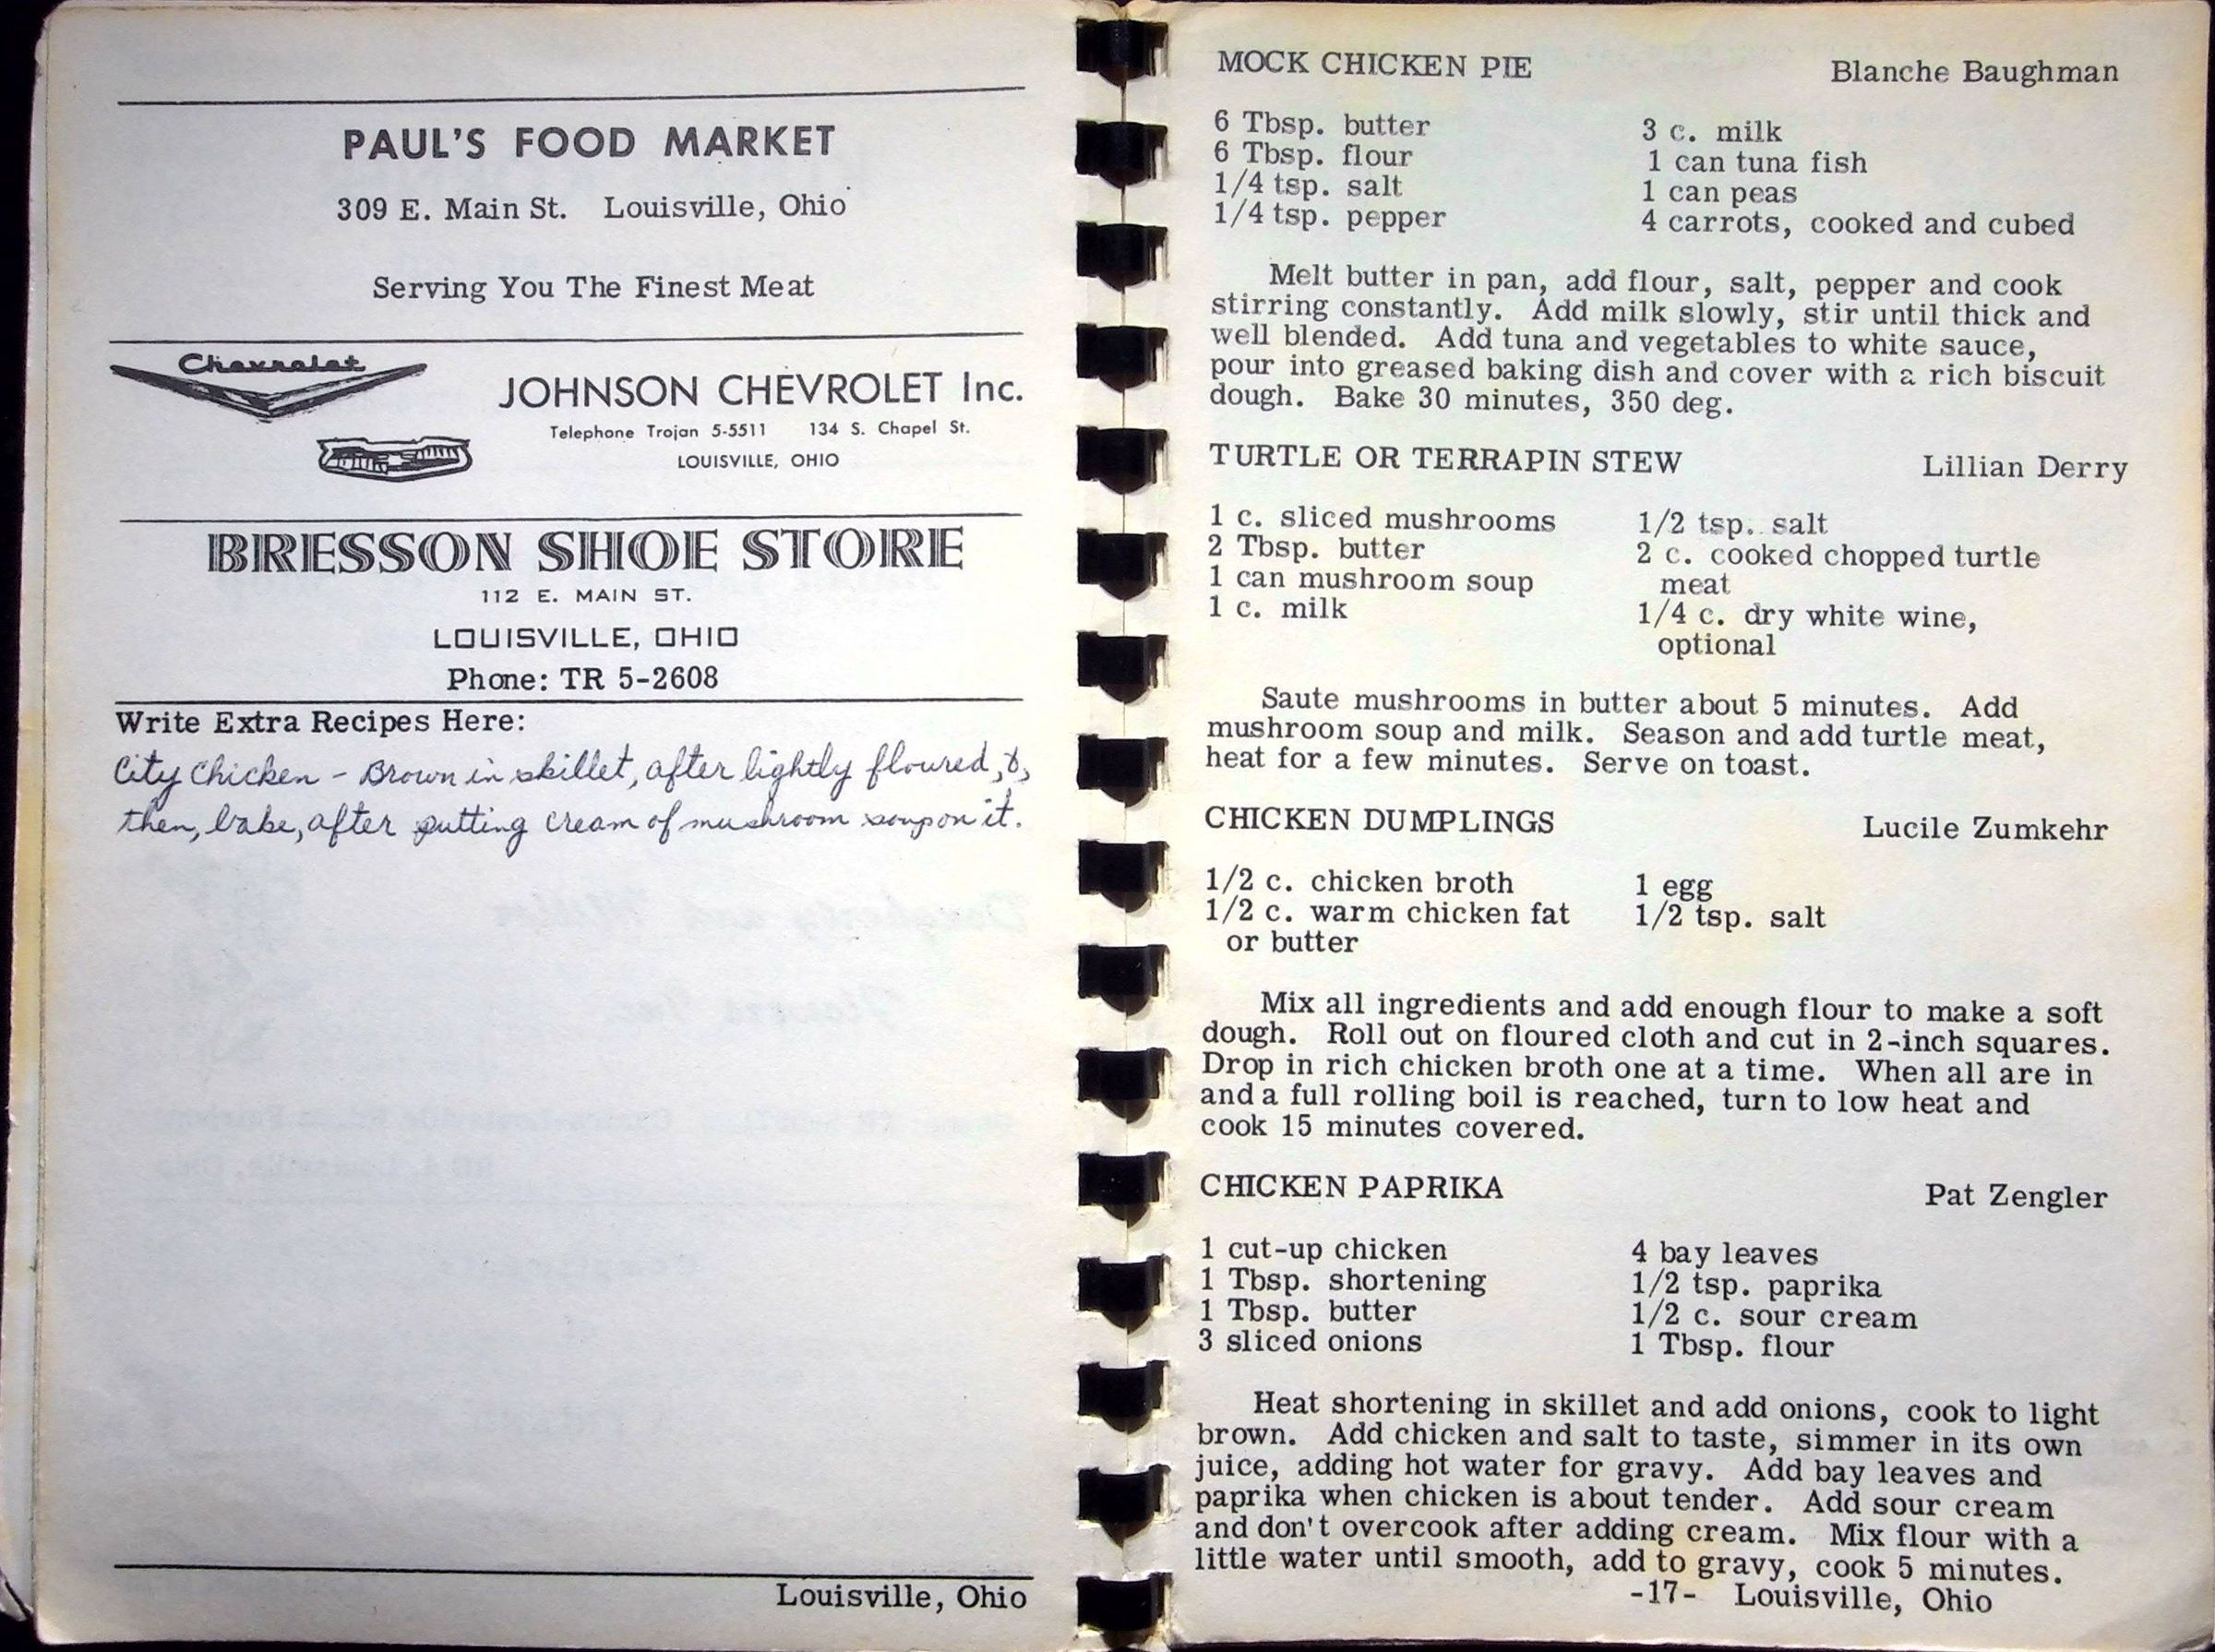 PAUL'S FOOD MARKET
309 E. Main St. Louisville, Ohio
Serving You The Finest Meat
Chevrolet
JOHNSON CHEVROLET Inc.
Telephone Trojan 5-5511 134 S. Chapel St.
LOUISVILLE, OHIO
BRESSON SHOE STORE
112 E. MAIN ST.
LOUISVILLE, OHIO
Phone: TR 5-2608
Write Extra Recipes Here:
City Chicken - Brown in skillet, after lightly floured, &,
then, bake, after putting cream of mushroom soup on it.
Louisville, Ohio
MOCK CHICKEN PIE Blanche Baughman
6 Tbsp. butter 3 c. milk
6 Tbsp. flour 1 can tuna fish
1/4 tsp. salt 1 can peas
1/4 tsp. pepper 4 carrots, cooked and cubed
Melt butter in pan, add flour, salt, pepper and cook
stirring constantly. Add milk slowly, stir until thick and
well blended. Add tuna and vegetables to white sauce,
pour into greased baking dish and cover with a rich biscuit
dough. Bake 30 minutes, 350 deg.
TURTLE OR TERRAPIN STEW Lillian Derry
1 c. sliced mushrooms 1/2 tsp. salt
2 Tbsp. butter 2 c. cooked chopped turtle
1 can mushroom soup meat
1 c. milk 1/4 c. dry white wine,
optional
Saute mushrooms in butter about 5 minutes. Add
mushroom soup and milk. Season and add turtle meat,
heat for a few minutes. Serve on toast.
CHICKEN DUMPLINGS Lucile Zumkehr
1/2 c. chicken broth 1 egg
1/2 c. warm chicken fat 1/2 tsp. salt
or butter
Mix all ingredients and add enough flour to make a soft
dough. Roll out on floured cloth and cut in 2-inch squares.
Drop in rich chicken broth one at a time. When all are in
and a full rolling boil is reached, turn to low heat and
cook 15 minutes covered.
CHICKEN PAPRIKA Pat Zengler
1 cut-up chicken 4 bay leaves
1 Tbsp. shortening 1/2 tsp. paprika
1 Tbsp. butter 1/2 c. sour cream
3 sliced onions 1 Tbsp. flour
Heat shortening in skillet and add onions, cook to light
brown. Add chicken and salt to taste, simmer in its own
juice, adding hot water for gravy. Add bay leaves and
paprika when chicken is about tender. Add sour cream
and don't overcook after adding cream. Mix flour with a
little water until smooth, add to gravy, cook 5 minutes.
-17- Louisville, Ohio